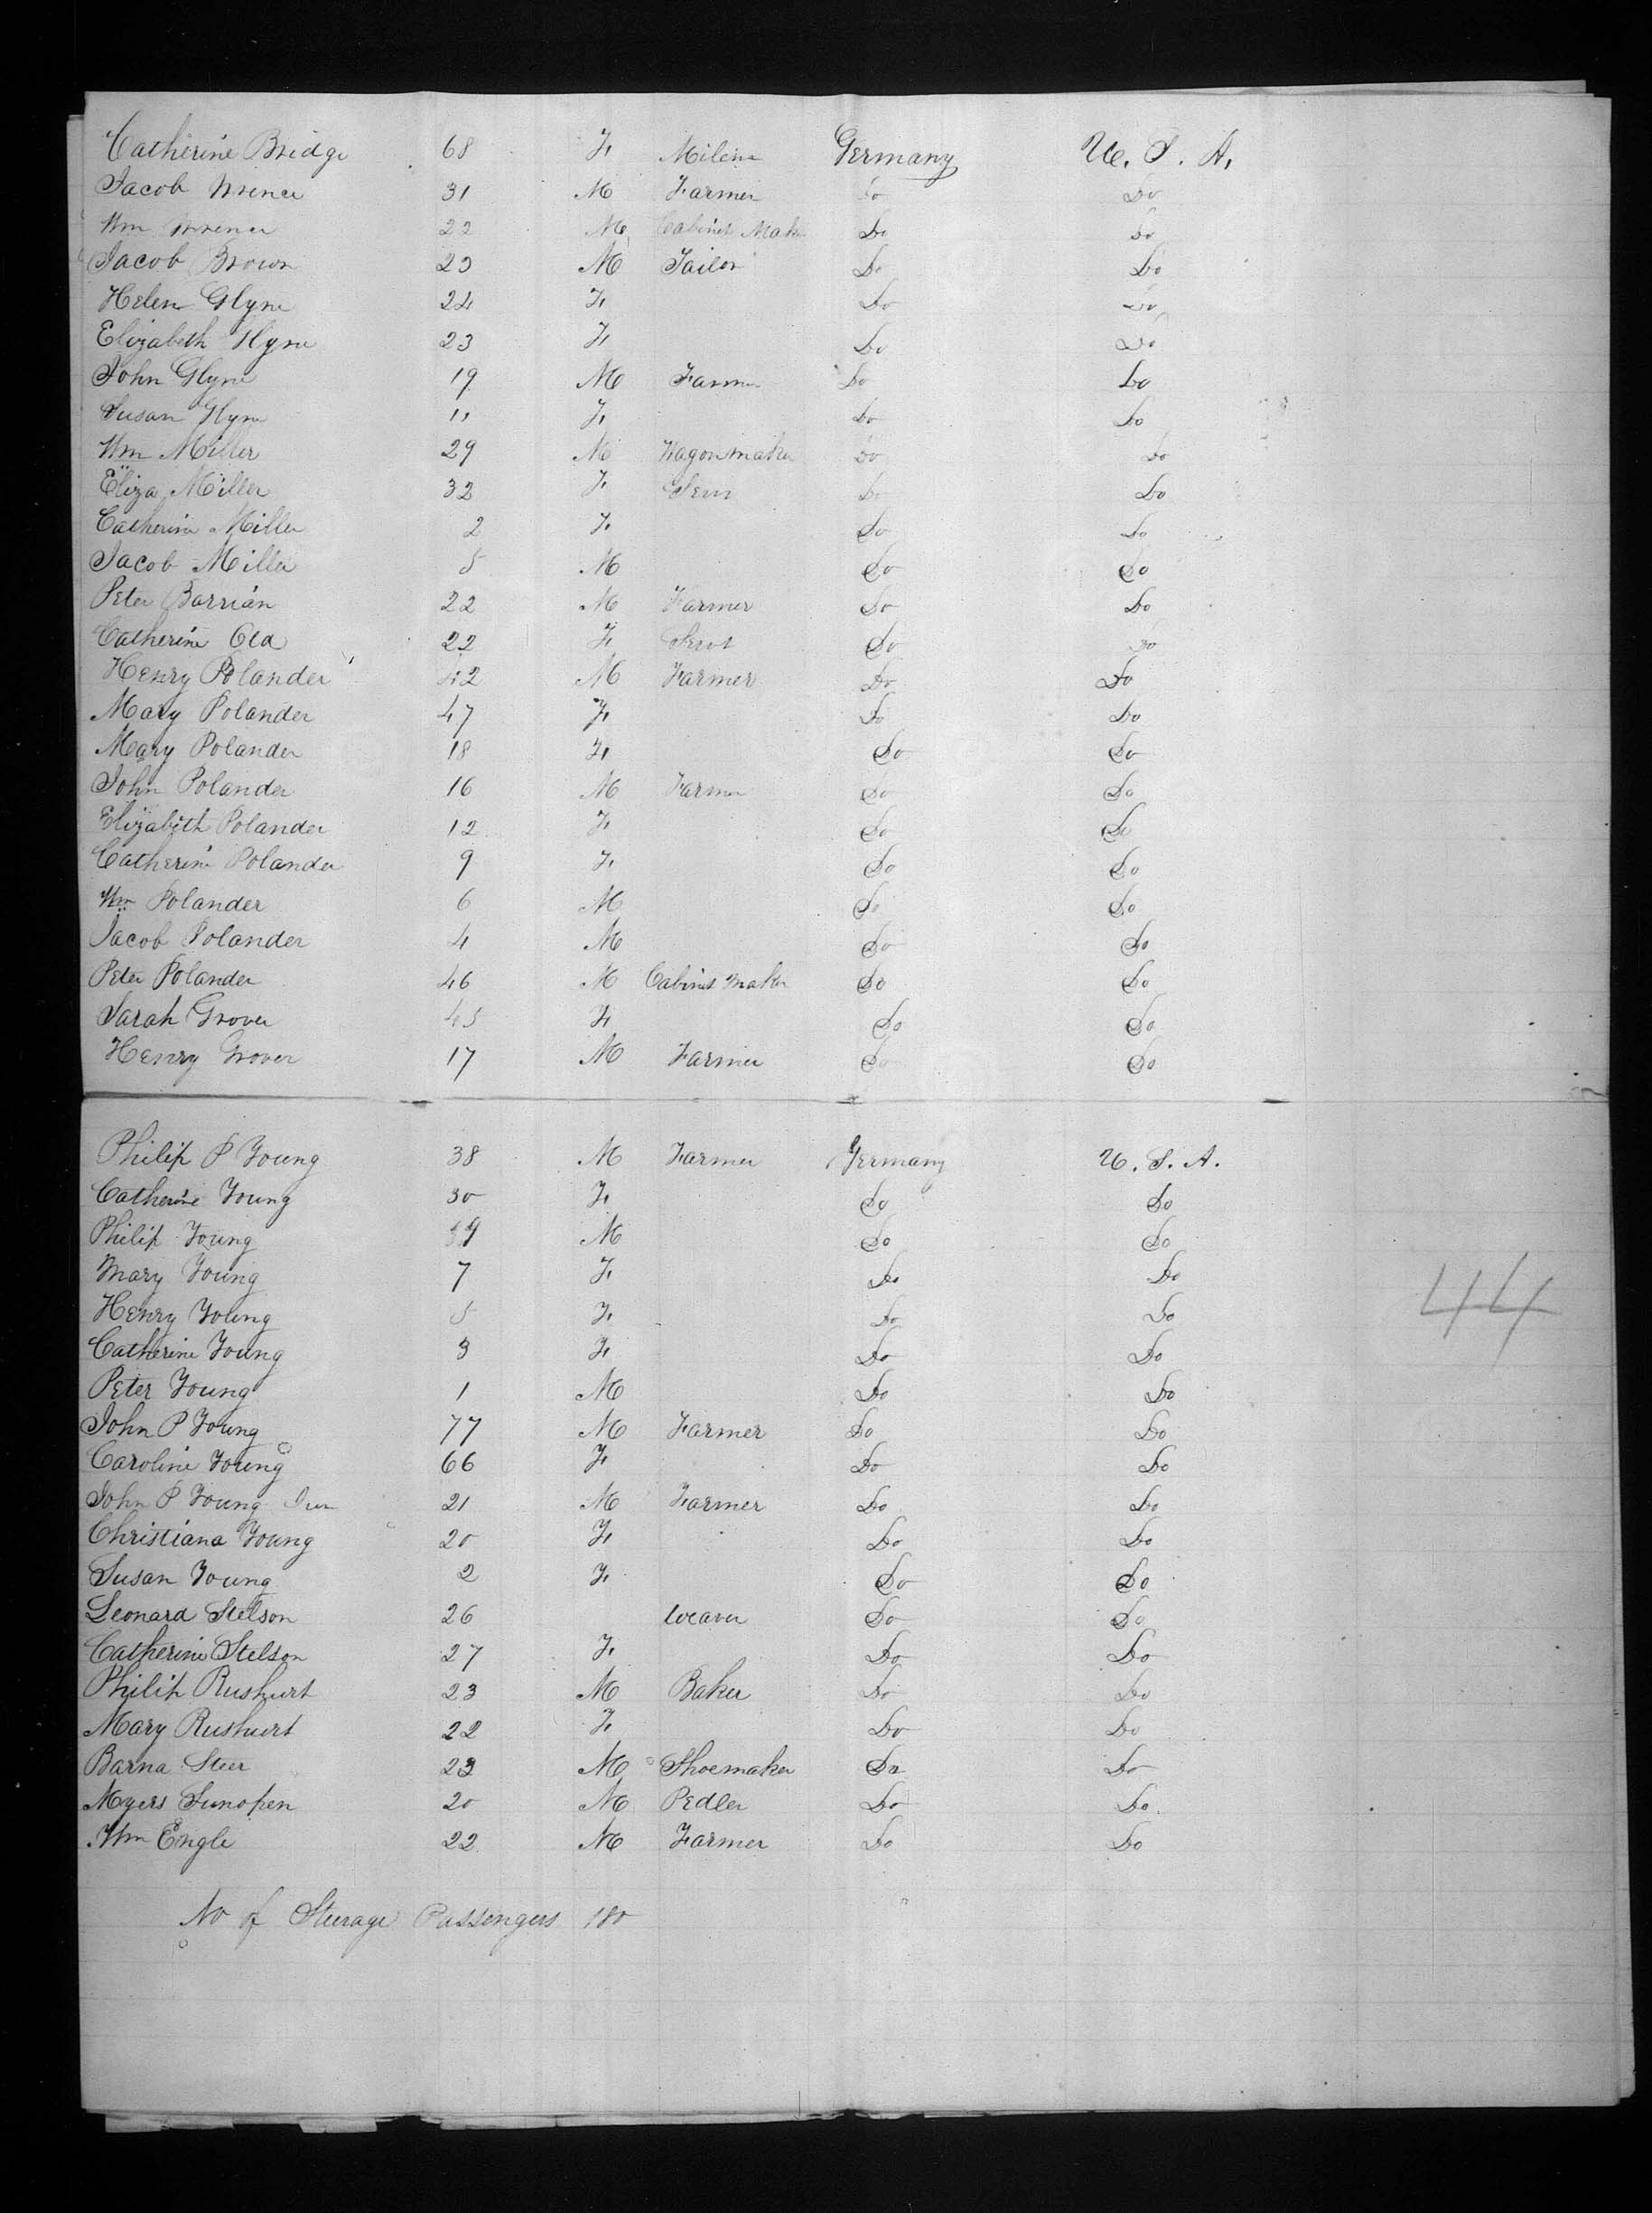 Catherine Bridge 68 F. Milens Germany U. S. A.
Jacob 31 M Farmer Do Do
Wm 22 M Cabinet Maker Do Do
Jacob Brown 23 M Tailor Do Do
Helen Glyne 24 F. Do Do
Elizabeth Glyne 23 F. Do Do
John Glyne 19 M Farmer Do Do
Susan Glyne 11 F. Do Do
Wm Miller 29 M Wagonmaker Do Do
Eliza Miller 32 F. Do Do
Catherine Miller 2 F. Do Do
Jacob Miller 5 M Do Do
Peter Barrian 22 M Farmer Do Do
Catherine 22 F. Servt Do Do
Henry Polander 42 M Farmer Do Do
Mary Polander 47 F. Do Do
Mary Polander 18 F. Do Do
John Polander 16 M Farmer Do Do
Elizabeth Polander 12 F. Do Do
Catherine Polander 9 F. Do Do
Wm Polander 6 M Do Do
Jacob Polander 4 M Do Do
Peter Polander 46 M Cabinet maker Do Do
Sarah Grover 45 F. Do Do
Henry Grover 17 M Farmer Do Do
Philip P Young 38 M Farmer Germany U. S. A.
Catherine Young 30 F. Do Do
Philip Young M Do Do
Mary Young 7 F. Do Do
44
Henry Young 5 F. Do Do
Catherine Young 3 F. Do Do
Peter Young 1 M Do Do
John P Young 77 M Farmer Do Do
Caroline Young 66 F. Do Do
John P Young Jun 21 M Farmer Do Do
Christiana Young 20 F. Do Do
Susan Young 2 F. Do Do
Leonard Stelson 26 Weaver Do Do
Catherine Stelson 27 F. Do Do
Philip Rushurt 23 M Baker Do Do
Mary Rushurt 22 F. Do Do
Barna Steer 23 M Shoemaker Do Do
Myers Sunopen 20 M Pedler Do Do
Wm Engle 22 M Farmer Do Do
No of Steerage Passengers 180